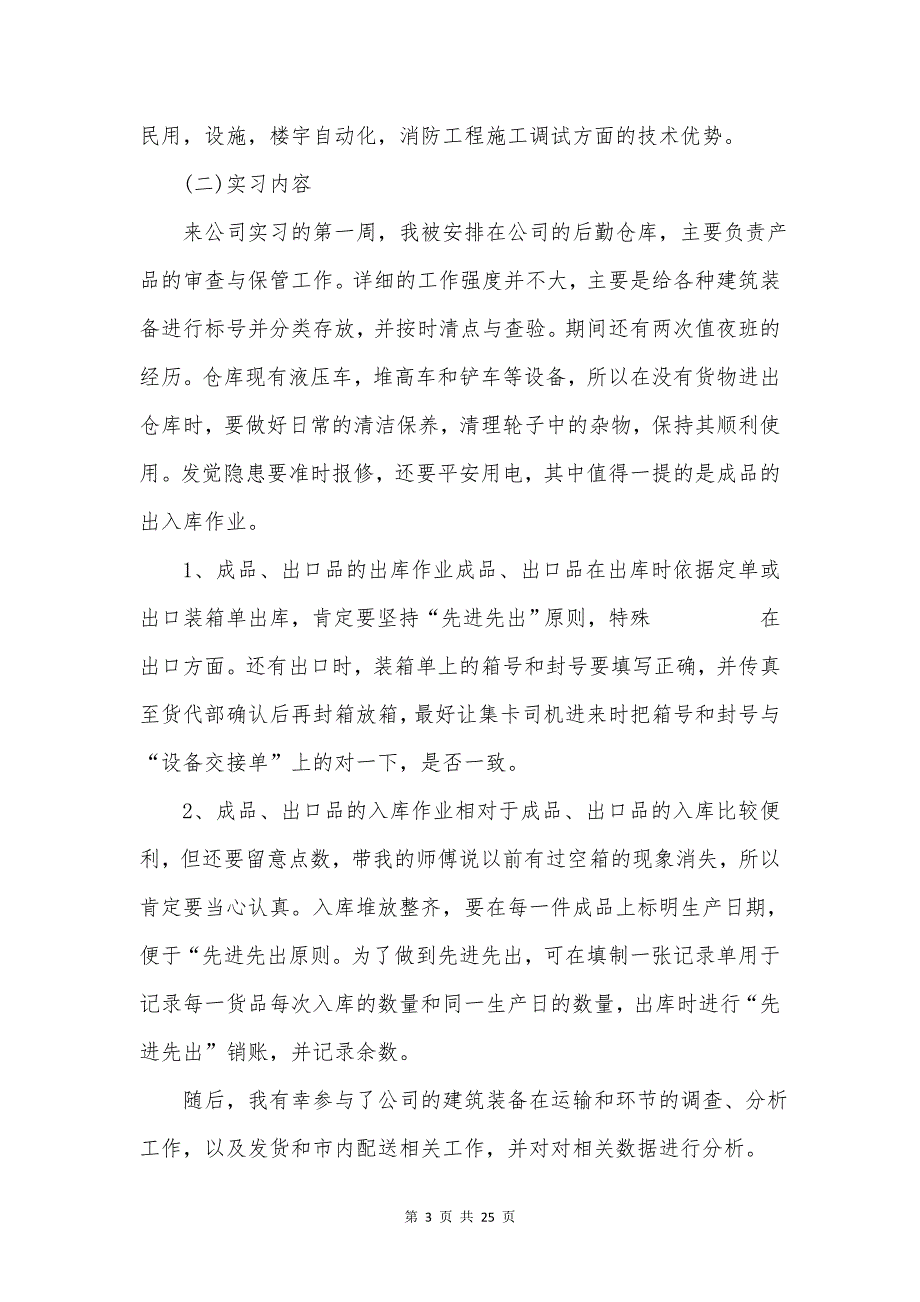 民用，设施，楼宇自动化，消防工程施工调试方面的技术优势。
(二)实习内容
来公司实习的第一周，我被安排在公司的后勤仓库，主要负责产
品的审查与保管工作。详细的工作强度并不大，主要是给各种建筑装
备进行标号并分类存放，并按时清点与查验。期间还有两次值夜班的
经历。仓库现有液压车，堆高车和铲车等设备，所以在没有货物进出
仓库时，要做好日常的清洁保养，清理轮子中的杂物，保持其顺利使
用。发觉隐患要准时报修，还要平安用电，其中值得一提的是成品的
出入库作业。
1、成品、出口品的出库作业成品、出口品在出库时依据定单或
出口装箱单出库，肯定要坚持“先进先出”原则，特殊 在
出口方面。还有出口时，装箱单上的箱号和封号要填写正确，并传真
至货代部确认后再封箱放箱，最好让集卡司机进来时把箱号和封号与
“设备交接单”上的对一下，是否一致。
2、成品、出口品的入库作业相对于成品、出口品的入库比较便
利，但还要留意点数，带我的师傅说以前有过空箱的现象消失，所以
肯定要当心认真。入库堆放整齐，要在每一件成品上标明生产日期，
便于“先进先出原则。为了做到先进先出，可在填制一张记录单用于
记录每一货品每次入库的数量和同一生产日的数量，出库时进行“先
进先出”销账，并记录余数。
随后，我有幸参与了公司的建筑装备在运输和环节的调查、分析
工作，以及发货和市内配送相关工作，并对对相关数据进行分析。
第 3 页 共 25 页